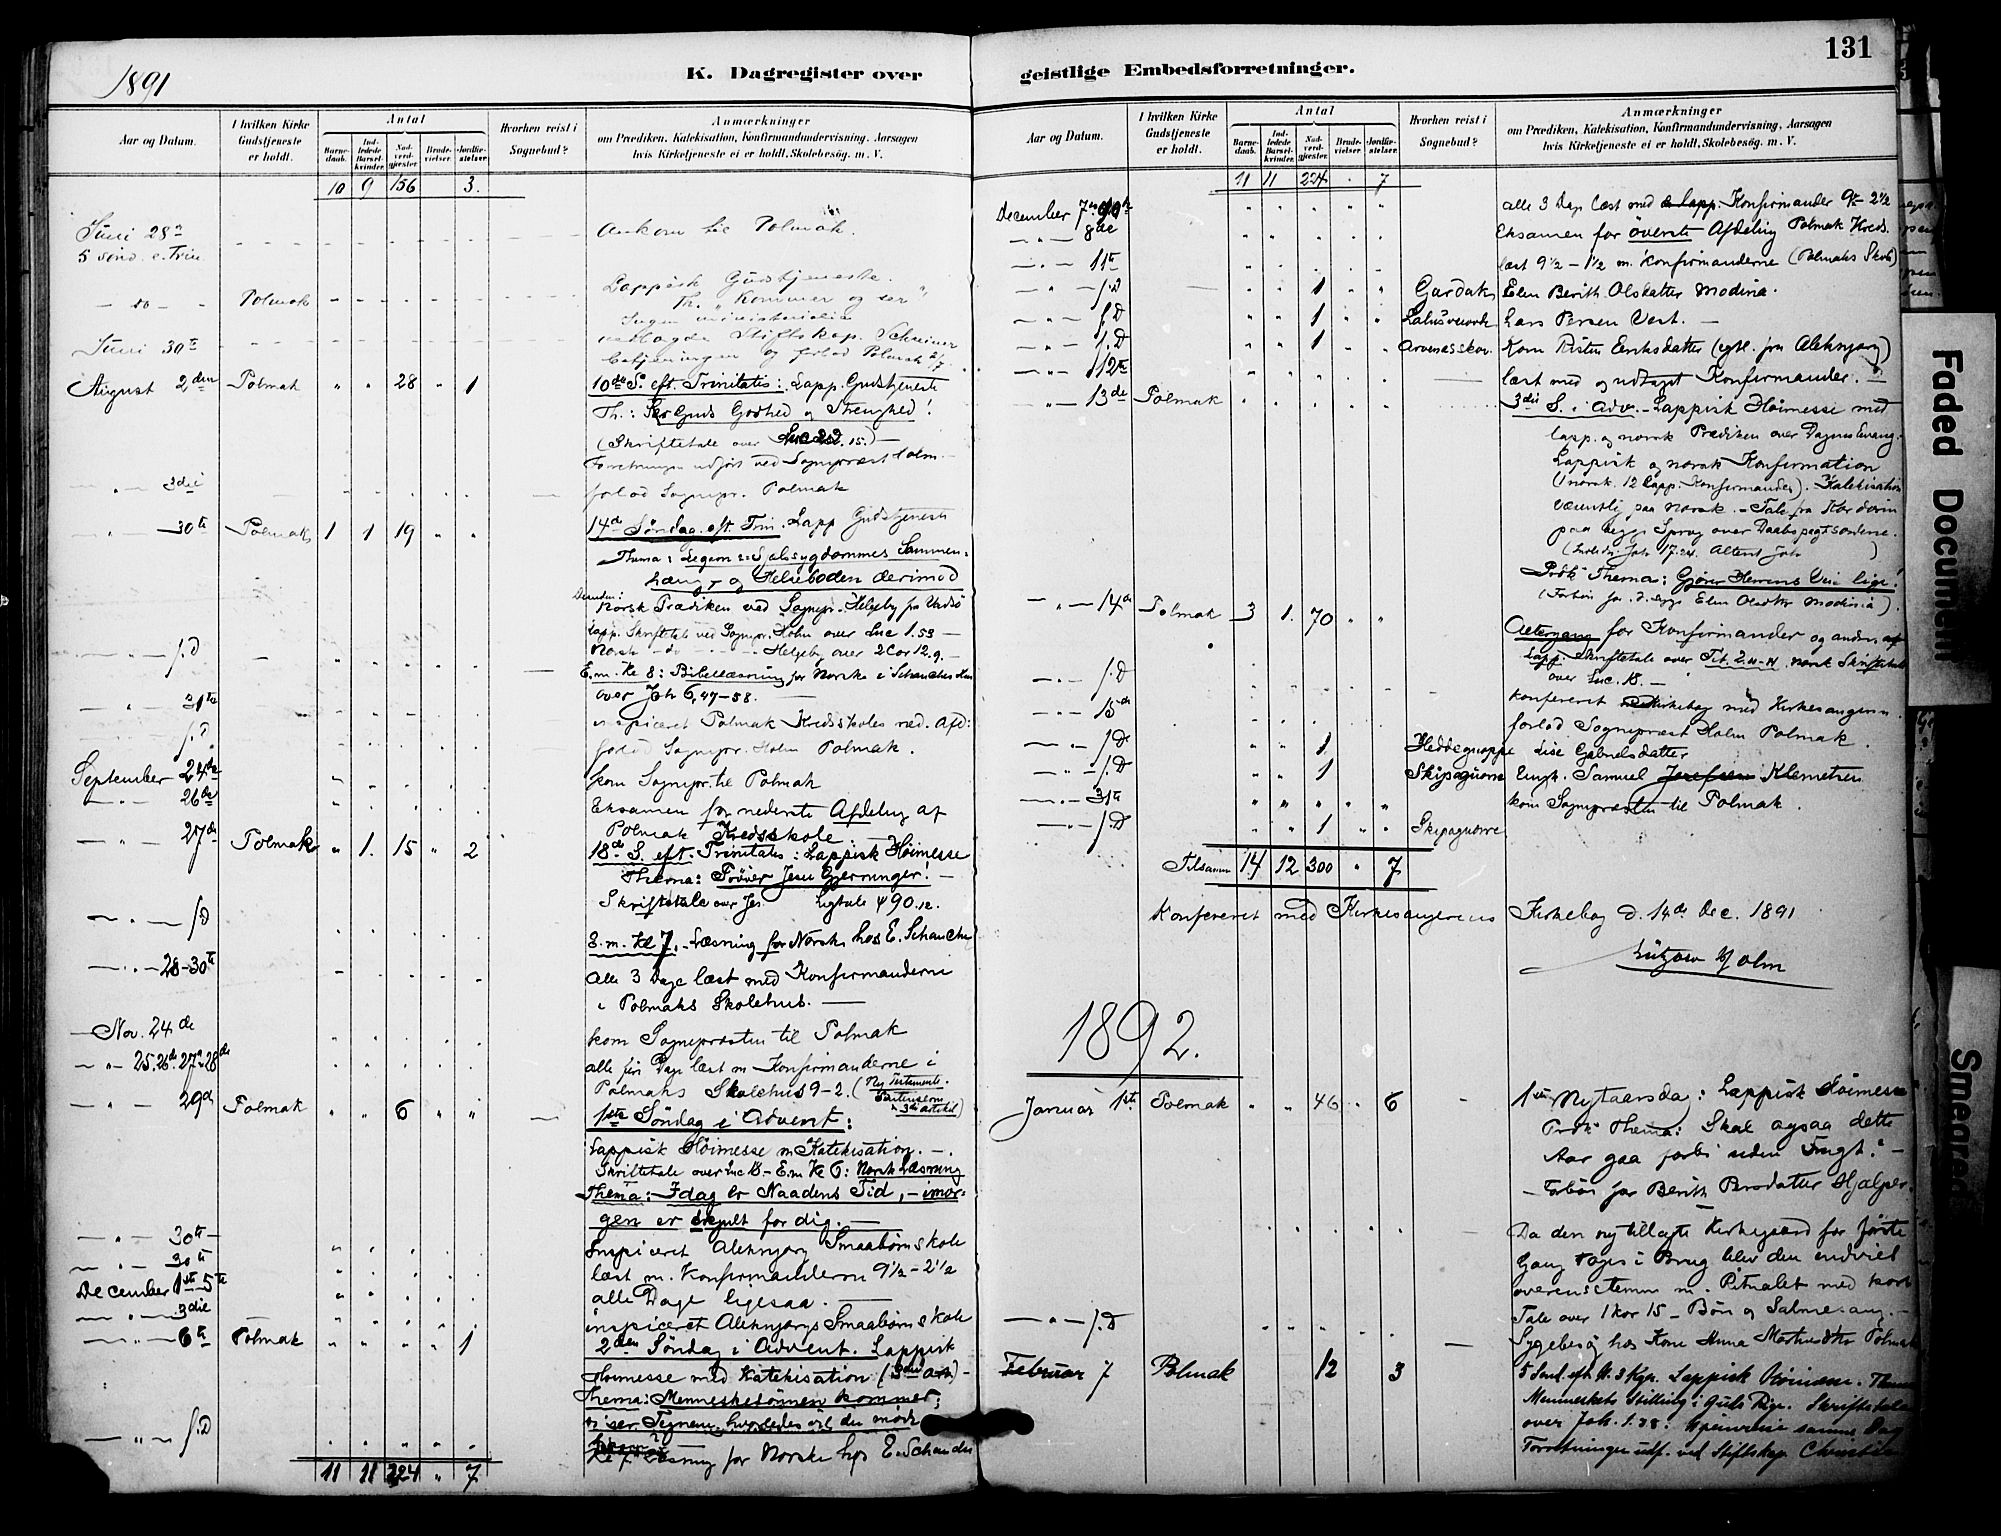 1891
K. Dagregister over
Aar og Datum.
I hvilken Kirke Gudstjeneste er holdt.
Antal
Barne-daab.
Ind-ledede Barsel-kvinder.
Nad-verd-gjester.
Brude-vielser.
Jordfæ-stelser.
Hvorhen reist i Sognebud?
Anmærkninger
om Prædiken, Katekisation, Konfirmandundervisning, Aarsagen
hvis Kirketjeneste ei er holdt, Skolebesøg. m. V.
10 9 156 3.
Juni 28de Ankom til Polmak.
5 Sønd. e. Trin
Lappisk Gudstjeneste.
— do — Polmak Th. "Kommer og ser"
Ingen ministerialia
Juni 30te modtagde Stiftskap. Schreiner
betjeningen og forlod Polmak 2/7
August 2den Polmak " " 28 " 1 10de S. eft. Trinitatis: Lapp. Gudstjeneste
Th.: Se Guds Godhed og Strenghed!
(Skriftetale over 15.) —
Forretningen udført ved Sogneprest Holm. —
— " — 3die forlod Sognepr. Polmak
— " — 30te Polmak 1 1 19 " " 14de Søndag eft. Trin. Lapp Gudstjeneste
Thema: Legem = Sjælssygdommes Sammen-
hæng, og Helseboden derimod
Desuden:
Norsk Prædiken ved Sognepr. Helgeby fra Vadsø
Lapp. Skriftetale ved Sognepr. Holm over Luc 1.53 —
Norsk — do — Helgeby over 2 Cor 12.9. —
— " — s.D — E.m. Kl 8: Bibellæsning for Norske i Schanches Hus
over Joh 6, 47-58. —
— " — 31te inspiceret Polmak Kredsskoles ned. Afd:
s.D forlod Sognepr. Holm Polmak.
September 24de kom Sognepr. til Polmak
— " — 26de Eksamen for nederste Afdeling af
Polmak Kredsskole
— " — 27de Polmak " 1. 15 " 2 18de S. eft. Trinitatis: Lappisk Høimesse
Thema: Prøver Jesu Gjerninger! —
Skriftetale over Jes. Ligtale ψ 90.12.
— " — s.D E.m. Kl 7. - Læsning for Norske hos E. Schanche
— " — 28-30te Alle 3 Dage læst med Konfirmanderne
i Polmaks Skolehus. —
— Nov. 24de kom Sognepræsten til Polmak
— " — 25. 26de. 27de 28de alle fire Dage læst m. Konfirmanderne i
Polmaks Skolehus 9-2. (Ny Testamente.
3die artikel)
— " — 29de Polmak " " 6 " " 1ste Søndag i Advent:
Lappisk Høimesse m. Katekisation. —.
Skriftetale over Luc 18 - E.m. Kl 6: Norsk Læsning
Thema: Idag er Naadens Tid, - imor-
gen er skjult for dig. —
— " — 30te — Inspiceret Aleknjarg Smaabørnskole
— " — 30te læst m. Konfirmanderne 9½ - 2½
December 1ste-5te alle Dage ligesaa. —
— " — 3die — inspiceret Aleknjargs Smaabørnskole
— " — 6te Polmak " " " " 1 2den Søndag i Advent. Lappisk
Høimesse med Katekisation (3die art) —
Thema: Menneskesønnen kommer;
vi ser Tegnene, hvorledes vil du møde
— " — s.D Kl 7 Læsning for Norske hos E. Schanche
11 11 224 " 7
geistlige Embedsforretninger.
131
Aar og Datum.
I hvilken Kirke Gudstjeneste er holdt.
Antal
Barne-daab.
Ind-ledede Barsel-kvinder.
Nad-verd-gjester.
Brude-vielser.
Jordfæ-stelser.
Hvorhen reist i Sognebud?
Anmærkninger
om Prædiken, Katekisation, Konfirmandundervisning, Aarsagen
hvis Kirketjeneste ei er holdt, Skolebesög. m. V.
11 11 224 " 7
December 7de alle 3 Dage læst med Lapp. Konfirmander 9 - 2½
— " — 8de Eksamen for överste Afdeling Polmak Kreds.
— " — 11te læst 9½ - 1½ m. Konfirmanderne (Polmaks Skole)
— " — s.D 1 Gardak Elen Berith Olsdatter Modina.
— " — s.D 1 Lars Persen Vest. —
— " — s.D 1 Kone Kristen Eriksdatter (fra Aleknjarg)
— " — 12te læst med og udtaget Konfirmander.
— " — 13de Polmak 3die S. i Adv. - Lappisk Höimesse med
lapp. og norsk Prædiken over Dagens Evang.
Lappisk og norsk Konfirmation
(1 norsk. 12 lapp. Konfirmander). Katekisation
væsentlig paa norsk. - Tale fra Kordøren
paa begge Sprog over Daabspagtsordene.
(Joh 17.24. Joh )
Præk. Thema: Gjører Herrens Vei lige!
(Forbøn for d. syge Elen Olsdtr Modina)
— " — 14de Polmak 3 1. 70 " " Altergang for Konfirmander og andre
Lapp. Skriftetale over Tit. 2. 11-14. norsk Skriftetale
over Luc. 18. —
— " — s.D konfereret Kirkebog med Kirkesangeren.
— " — 15de forlod Sogneprest Holm Polmak.
— " — s.D 1 Lise Gabrielsdatter
— " — s.D 1 Skipagurra Ungk. Samuel Josefsen Klemetsen
— " — 31te kom Sognepræsten til Polmak.
— " — s.D 1 Skipagurra
Tilsamm 14 12 300 " 7
Konfereret med Kirkesangerens Kirkebog d. 14de Dec. 1891
Lützow Holm
1892.
Januar 1ste. Polmak " " 46 " 6 1ste Nytaarsdag: Lappisk Høimesse
Præk. Thema: Skal ogsaa dette
Aar gaa forbi uden Frugt? —
— Forbøn for Berith Hjelper.
Da den ny tillagte Kirkegaard for første
Gang toges i Brug blev den indviet
overensstemm. m. Ritualet med kort
Tale over 1 Kor 15 - Bøn og Salmesang. —
— " — s.D Sygebesøg hos Kone Anna Polmak
Februar 7 Polmak 12 3 5 Sønd. eft. H. 3 Kgr. Lappisk Høimesse. Thema
Menneskets Stilling i Guds Rige. Skriftetale
over Joh. 1.
Forretningen udf. ved Stiftskap. Christi
Faded Document
Smeared